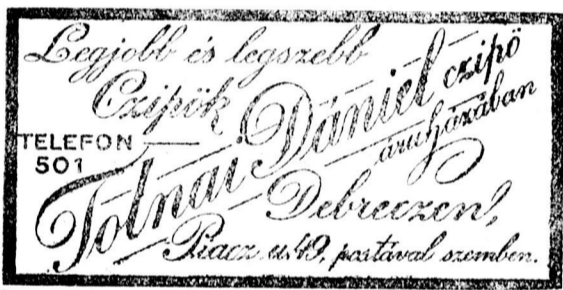 Legjobb és legszebb
Czipők
TELEFON
501
Tolnai Dániel czipő
áruházában
Debreczen,
Piacz u.49, postával szemben.